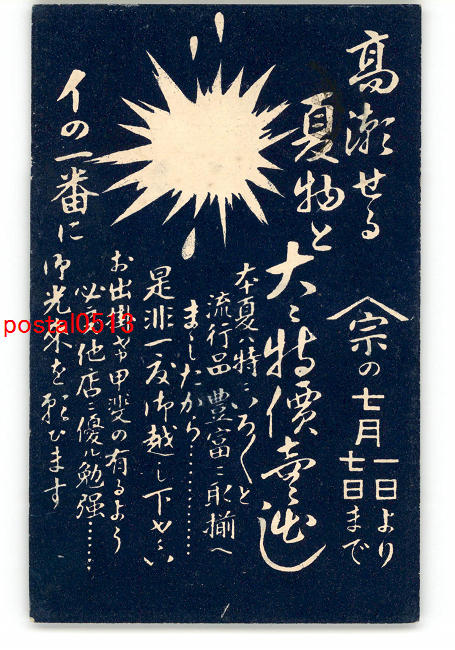 高瀬せる
夏物と
大々特價売出
宗の七月一日より
七日まで
本夏ハ特ニいろ〱と
流行品豊富ニ取揃へ
ましたから…………
是非一度御越し下せい
お出掛せ甲斐の有るよう
必ズ他店ニ優ル勉強………
イの一番に御光来を願ひます
postal0513